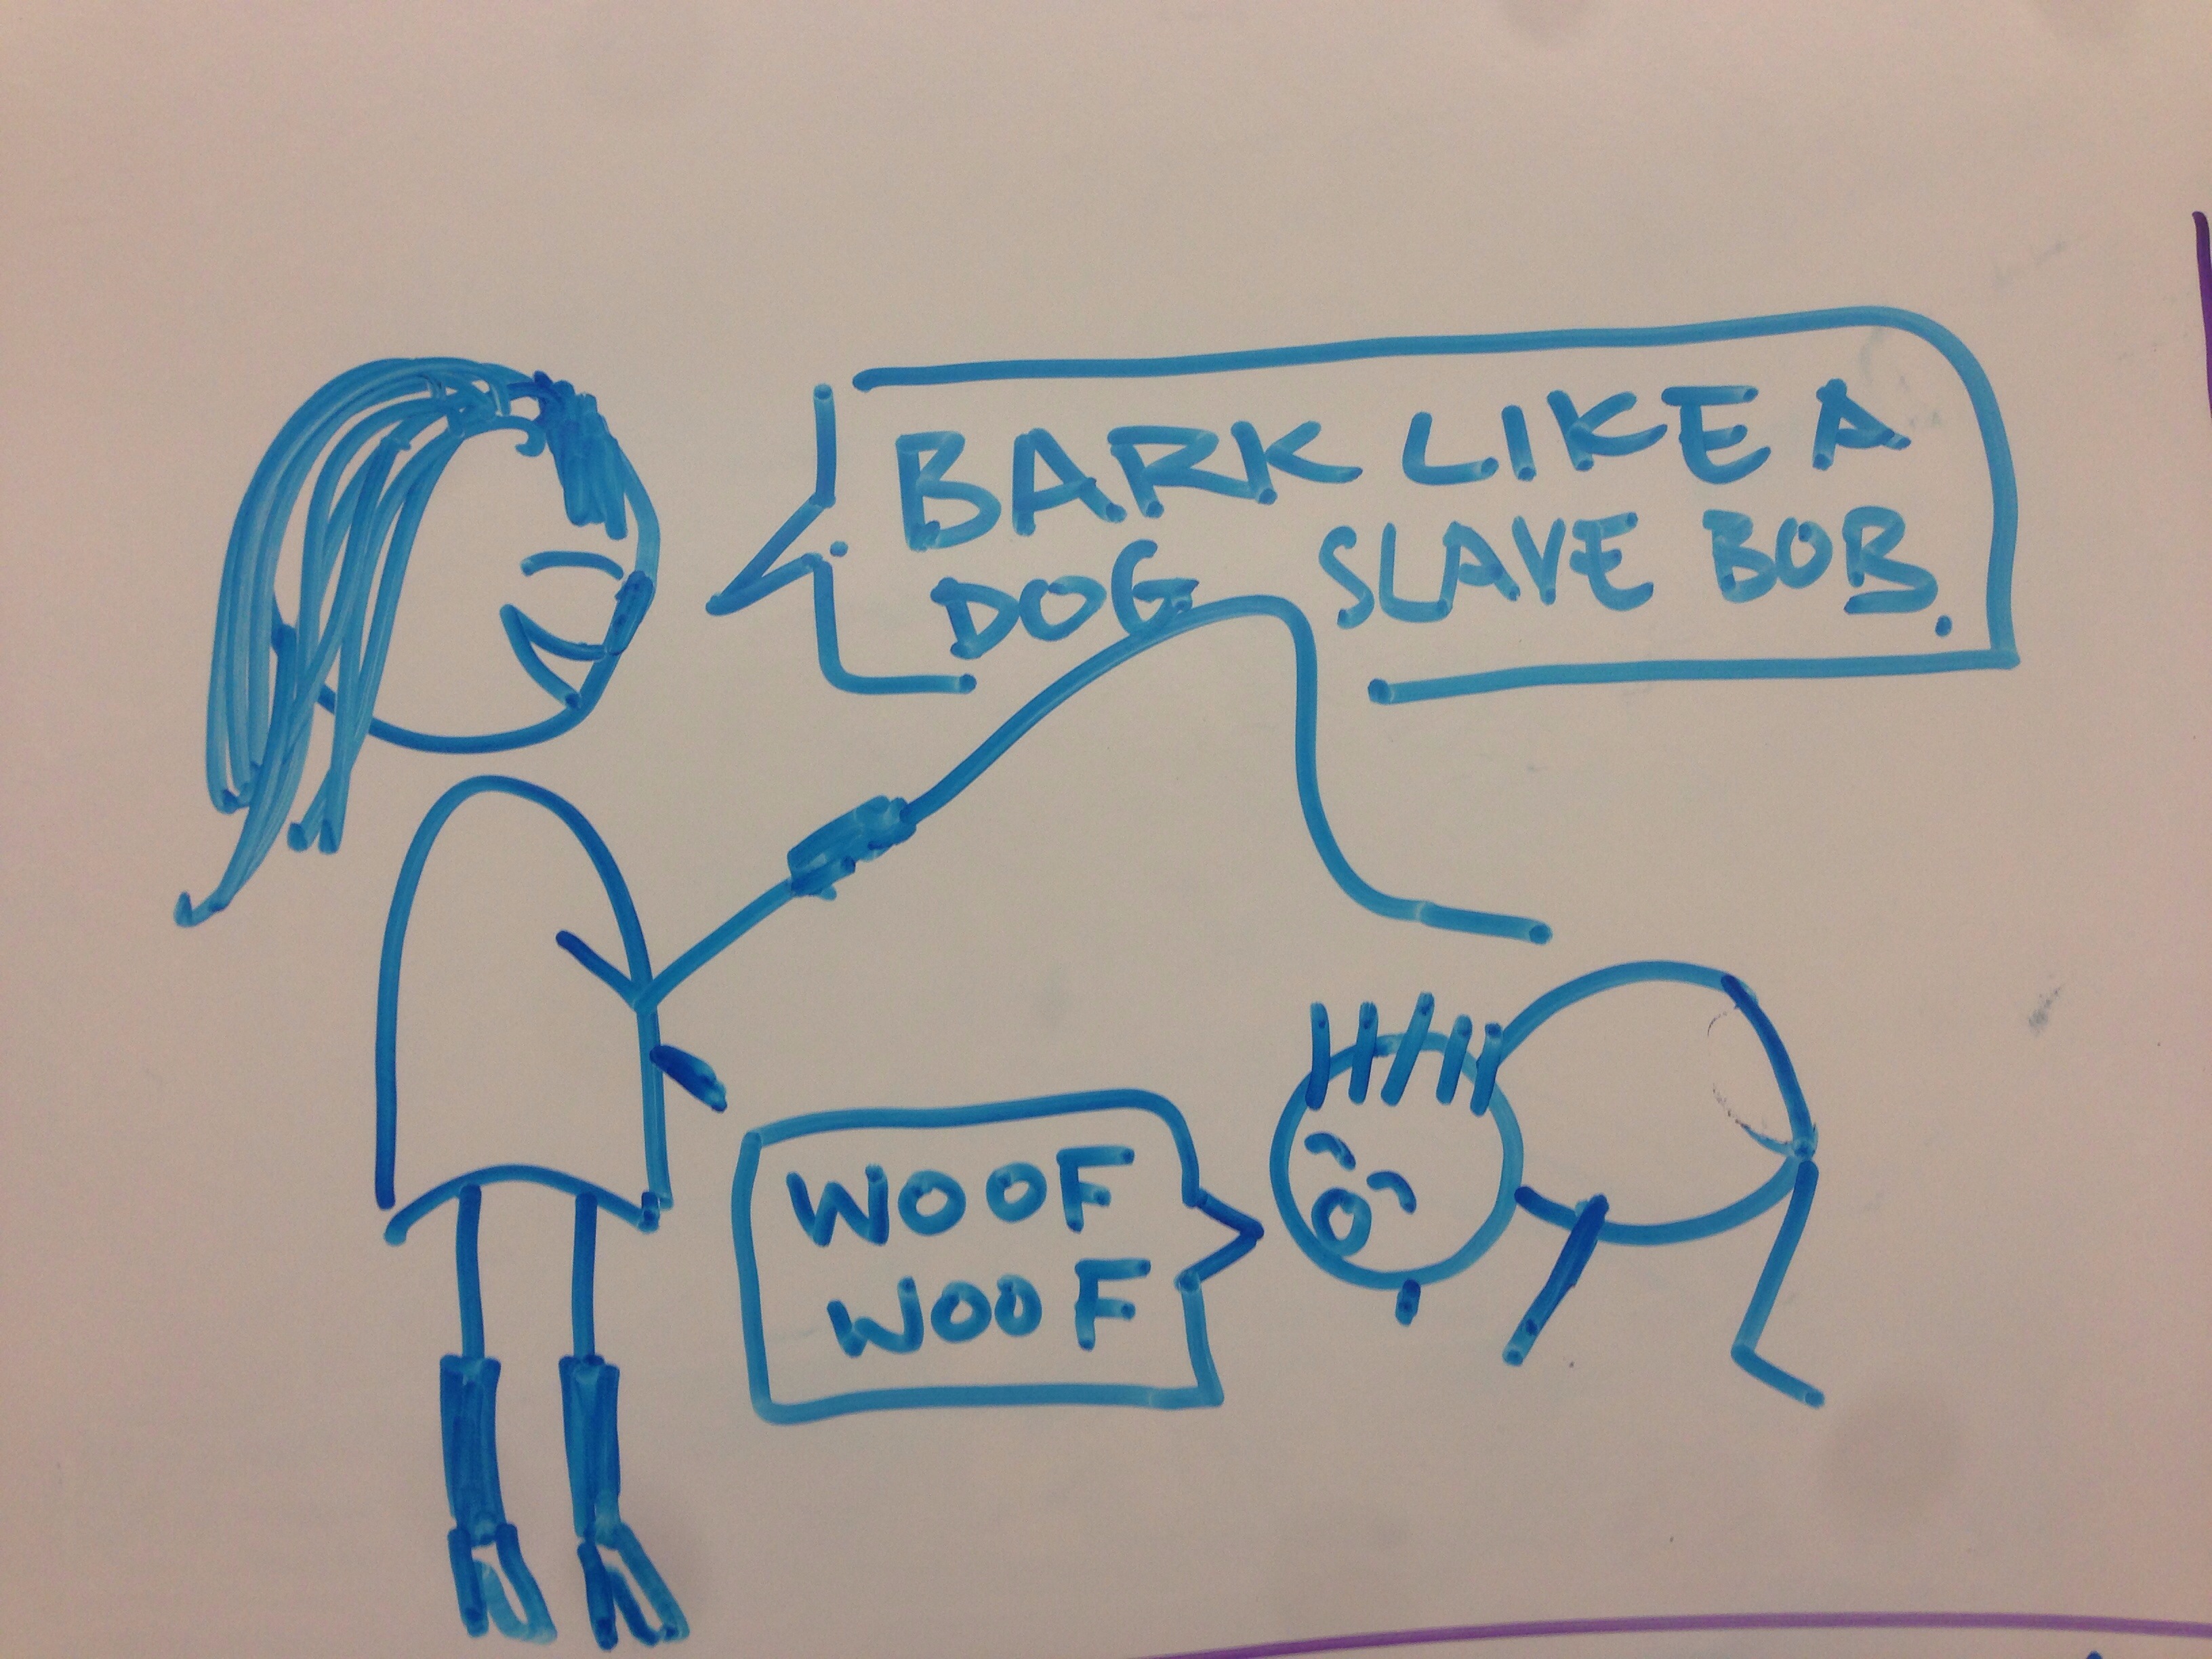 BARK LIKE A
DOG SLAVE BOB.
WOOF
WOOF